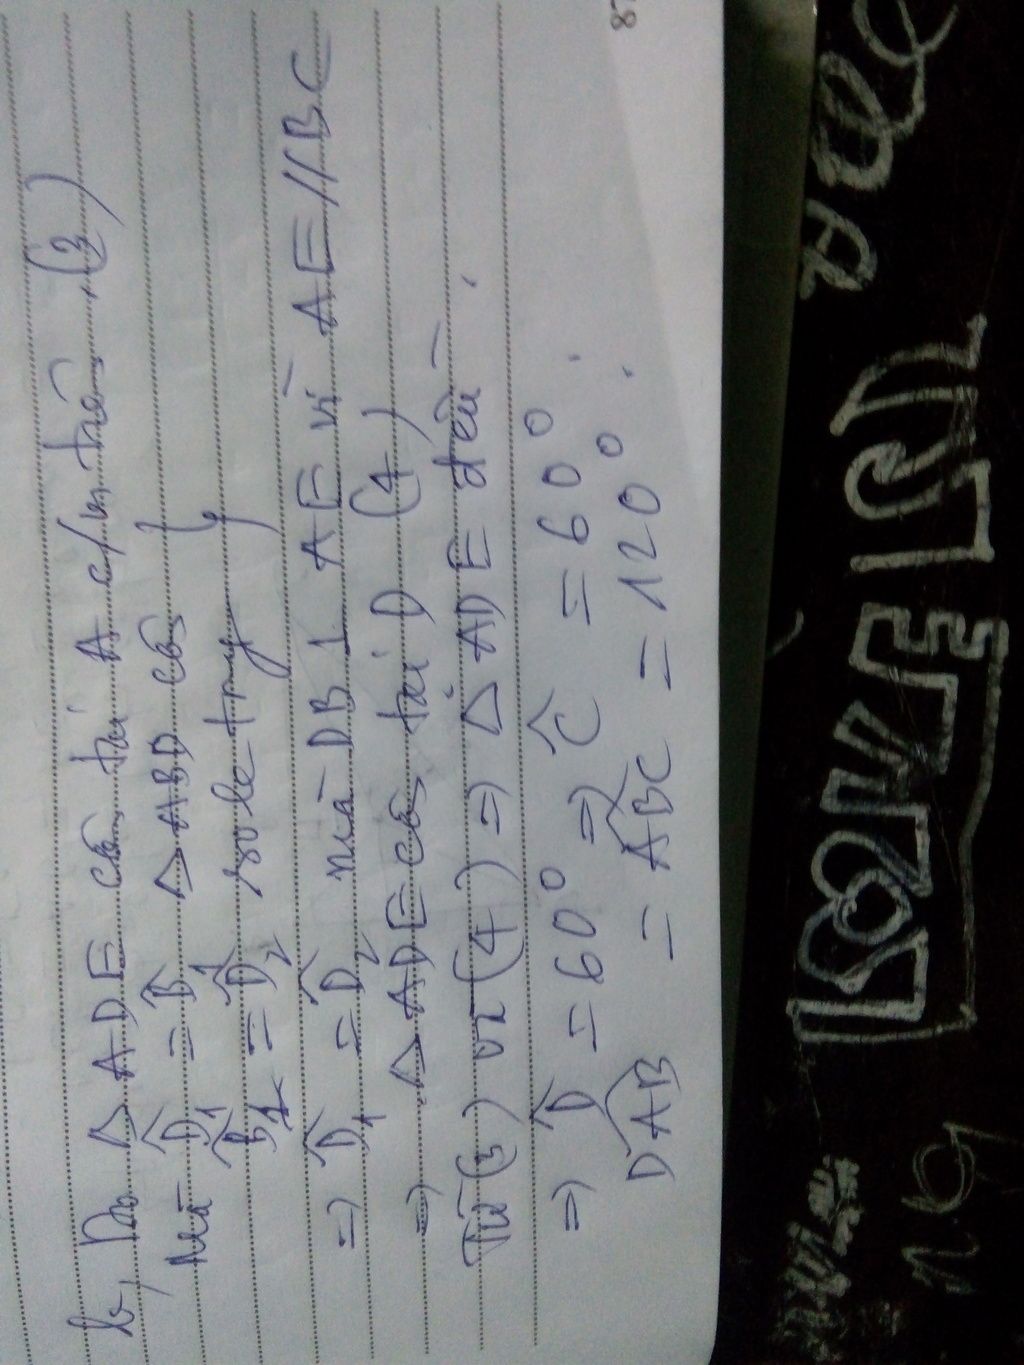 b, Do △ ADE cân tại A c/m trên. (3)
Mà D̂₁ = B̂₁ △ ABD cân }
B̂₂ = D̂₂ sole trong }
⇒ D̂₁ = D̂₂ mà DB ⊥ AE vì AE // BC
⇒ △ ADE cân tại D (4)
Từ (3) và (4) ⇒ △ ADE đều.
⇒ D̂ = 60° ⇒ Ĉ = 60°.
DAB = ABC = 120°.
LOVE
19